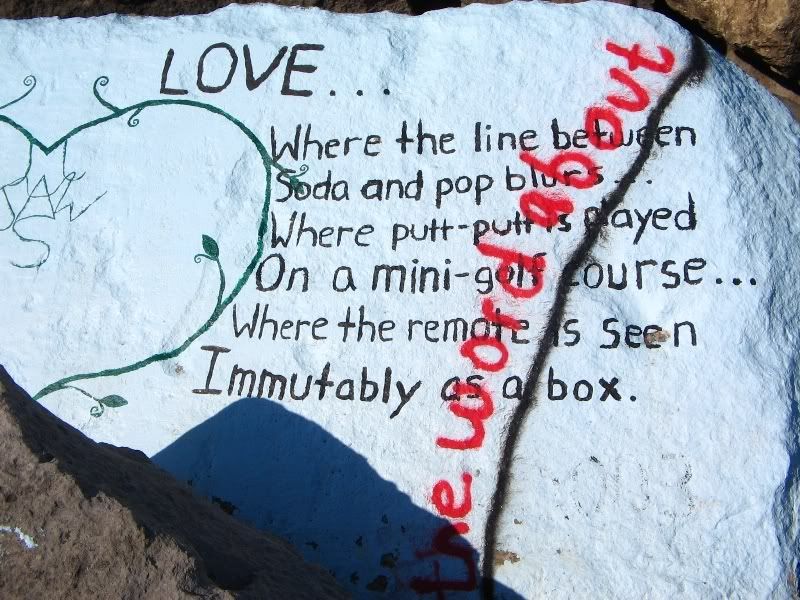 LOVE...
Where the line between
Soda and pop blurs...
Where putt-putt is played
On a mini-golf course...
Where the remote is seen
Immutably as a box.
the word about